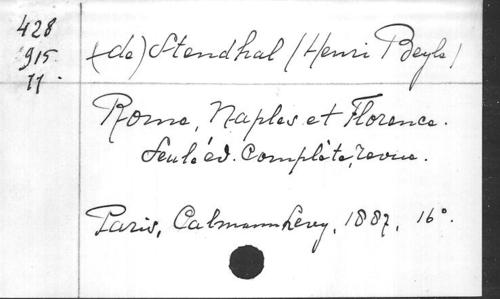 428
915
11.
(de) Stendhal (Henri Beyle)
Rome, Naples et Florence.
Seule éd. Complète, revue.
Paris, Calmann Levy, 1887, 16°.